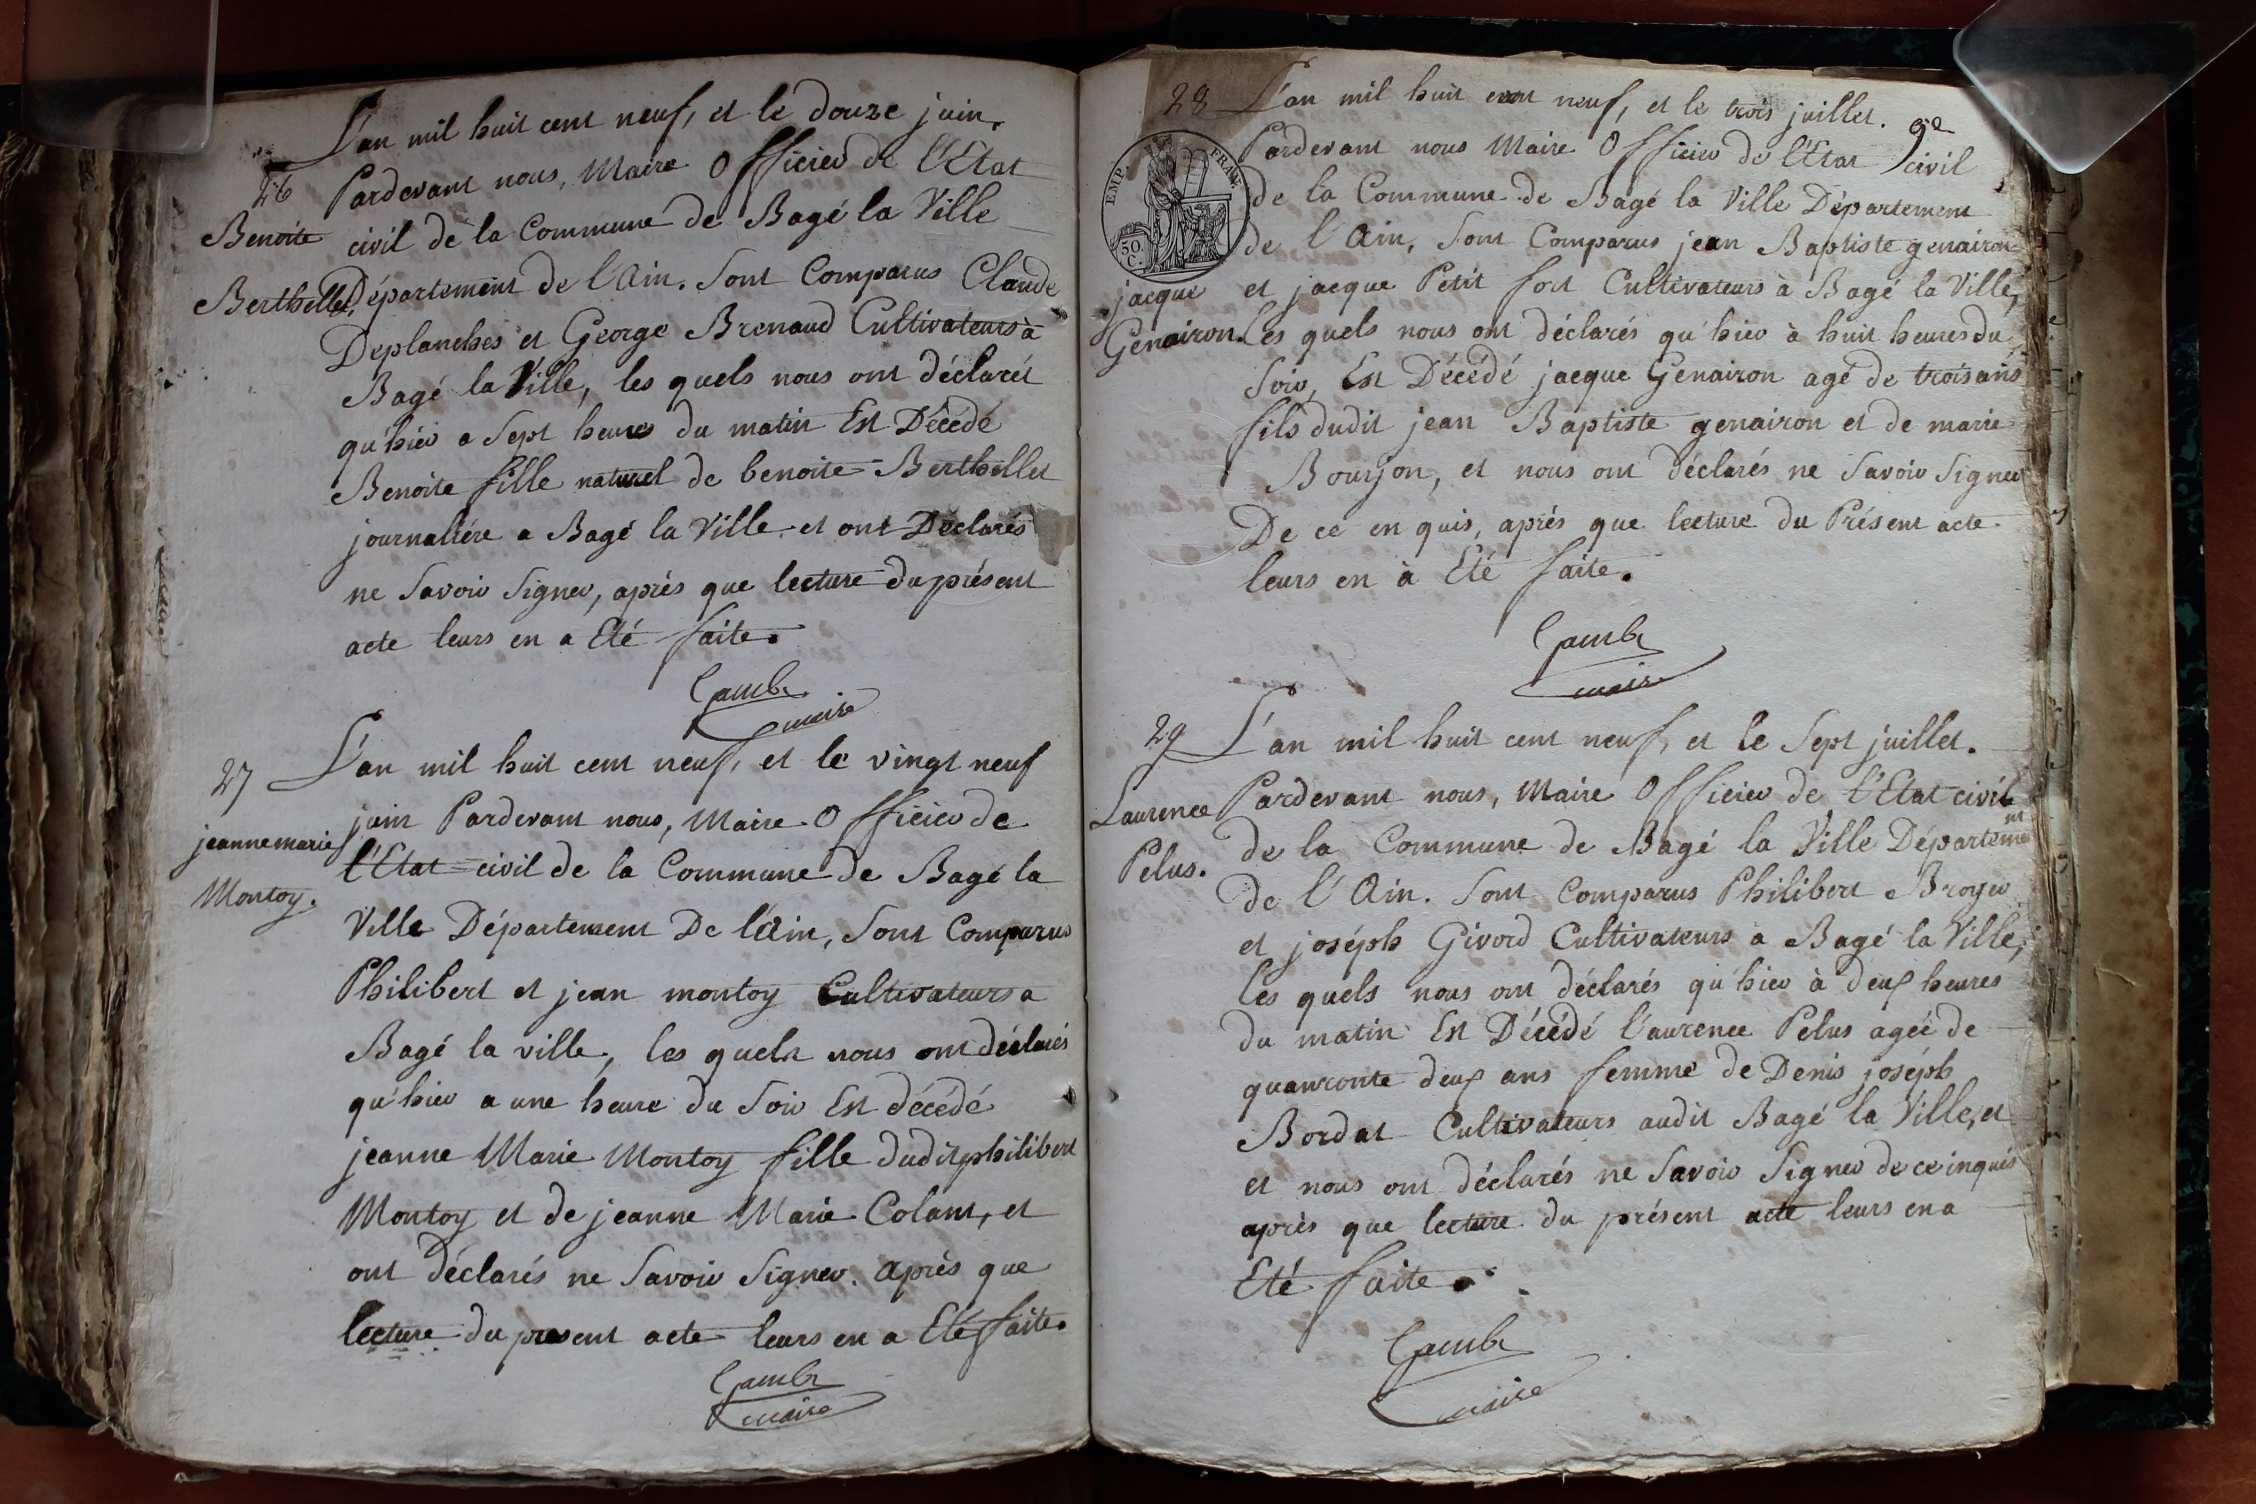 L'an mil huit cent neuf, et le douze juin.
26
Pardevant nous, Maire Officier de l'Etat
Benoite
civil de la Commune de Bagé la Ville
Berthellet.
Département de l'Ain. Sont Comparus Claude
Deplanches et George Brenaud Cultivateurs à
Bagé la Ville, les quels nous ont déclarés
qu'hier a Sept heures du matin Est Décédé
Benoite fille naturel de benoite Berthellet
journaliére a Bagé la Ville et ont Déclarés
ne Savoir Signer, aprés que lecture du présent
acte leurs en a Eté faite.
maire
27
L'an mil huit cent neuf, et le vingt neuf
juin Pardevant nous, Maire Officier de
jeanne marie
l'Etat civil de la Commune de Bagé la
Montoy.
Ville Département De l'Ain, Sont Comparus
Philibert et jean montoy Cultivateurs a
Bagé la ville, les quels nous ont déclarés
qu'hier a une heure du Soir Est décédé
jeanne Marie Montoy fille dudit philibert
Montoy et de jeanne Marie Colant, et
ont déclarés ne Savoir Signer. Après que
lecture du present acte leurs en a Eté faite.
maire
28
L'an mil huit cent neuf, et le trois juillet.
Pardevant nous Maire Officier de l'Etat civil
EMP. FRAN.
50 C.
de la Commune de Bagé la Ville Département
de l'Ain, Sont Comparus jean Baptiste genairon
jacque
et jacque Petit fort Cultivateurs à Bagé la Ville,
Genairon.
Les quels nous ont déclarés qu'hier à huit heures du
Soir, Est Décédé jacque Genairon agé de trois ans
fils dudit jean Baptiste genairon et de marie
Bourjon, et nous ont déclarés ne Savoir Signer
De ce en quis, aprés que lecture du Présent acte
leurs en à Eté faite.
maire
29
L'an mil huit cent neuf, et le Sept juillet.
Laurence
Pardevant nous, Maire Officier de l'Etat civil
Pelus.
de la Commune de Bagé la Ville Département
de l'Ain. Sont Comparus Philibert Broyer
et joséph Givord Cultivateurs a Bagé la Ville,
les quels nous ont déclarés qu'hier à deux heures
du matin Est Décédé l'aurence Pelus agée de
quarronte deux ans femme de Denis joséph
Bordat Cultivateurs audit Bagé la Ville, et
et nous ont déclarés ne Savoir Signer de ce inqués
après que lecture du présent acte leurs en a
Eté faite.
maire